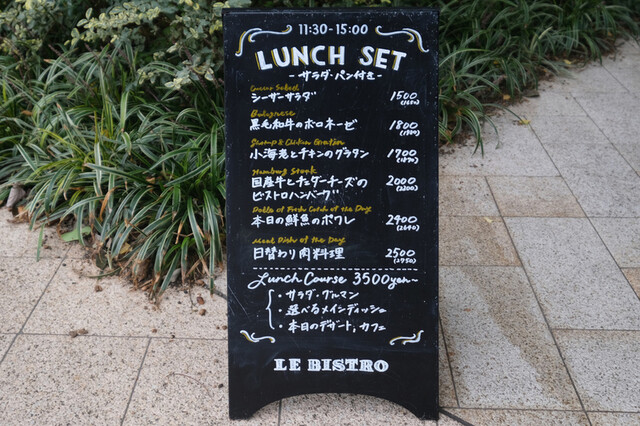 11:30-15:00
LUNCH SET
-サラダ・パン付き-
Green Salad
シーザーサラダ 1500
(1650)
Bolognese
黒毛和牛のボロネーゼ 1800
(1980)
Shrimp & Chicken Gratin
小海老とチキンのグラタン 1700
(1870)
Hamburg Steak
国産牛とチェダーチーズの 2000
ビストロハンバーグ (2200)
Poêle of Fresh Catch of the Day
本日の鮮魚のポワレ 2400
(2640)
Meat Dish of the Day
日替わり肉料理 2500
(2750)
Lunch Course 3500yen~
・サラダ・グルマン
・選べるメインディッシュ
・本日のデザート,カフェ
LE BISTRO